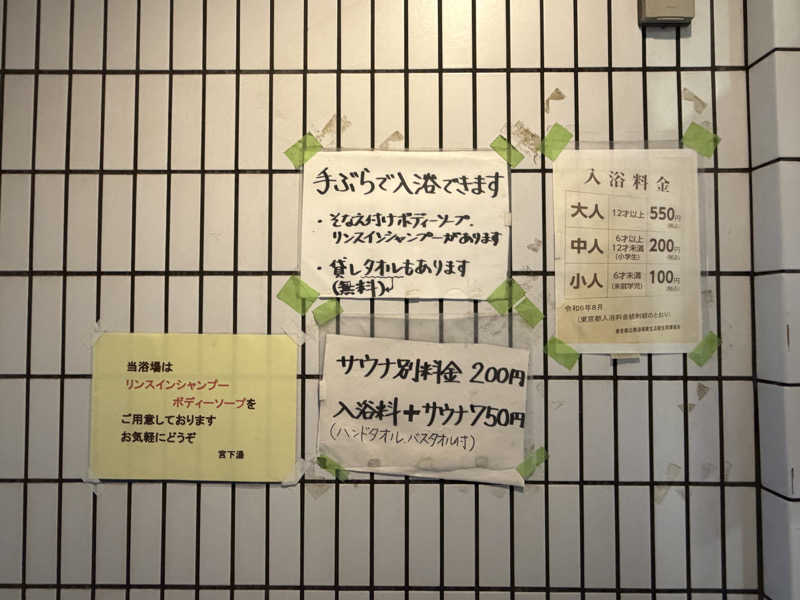 手ぶらで入浴できます
・そなえ付けボディーソープ、
リンスインシャンプーがあります
・貸しタオルもあります
(無料)
サウナ別料金 200円
入浴料+サウナ750円
(ハンドタオル、バスタオル付)
当浴場は
リンスインシャンプー
ボディーソープを
ご用意しております
お気軽にどうぞ
宮下湯
入浴料金
大人 12才以上 550円(税込)
中人 6才以上 12才未満 (小学生) 200円(税込)
小人 6才未満 (未就学児) 100円(税込)
令和6年8月
(東京都入浴料金統制額のとおり)